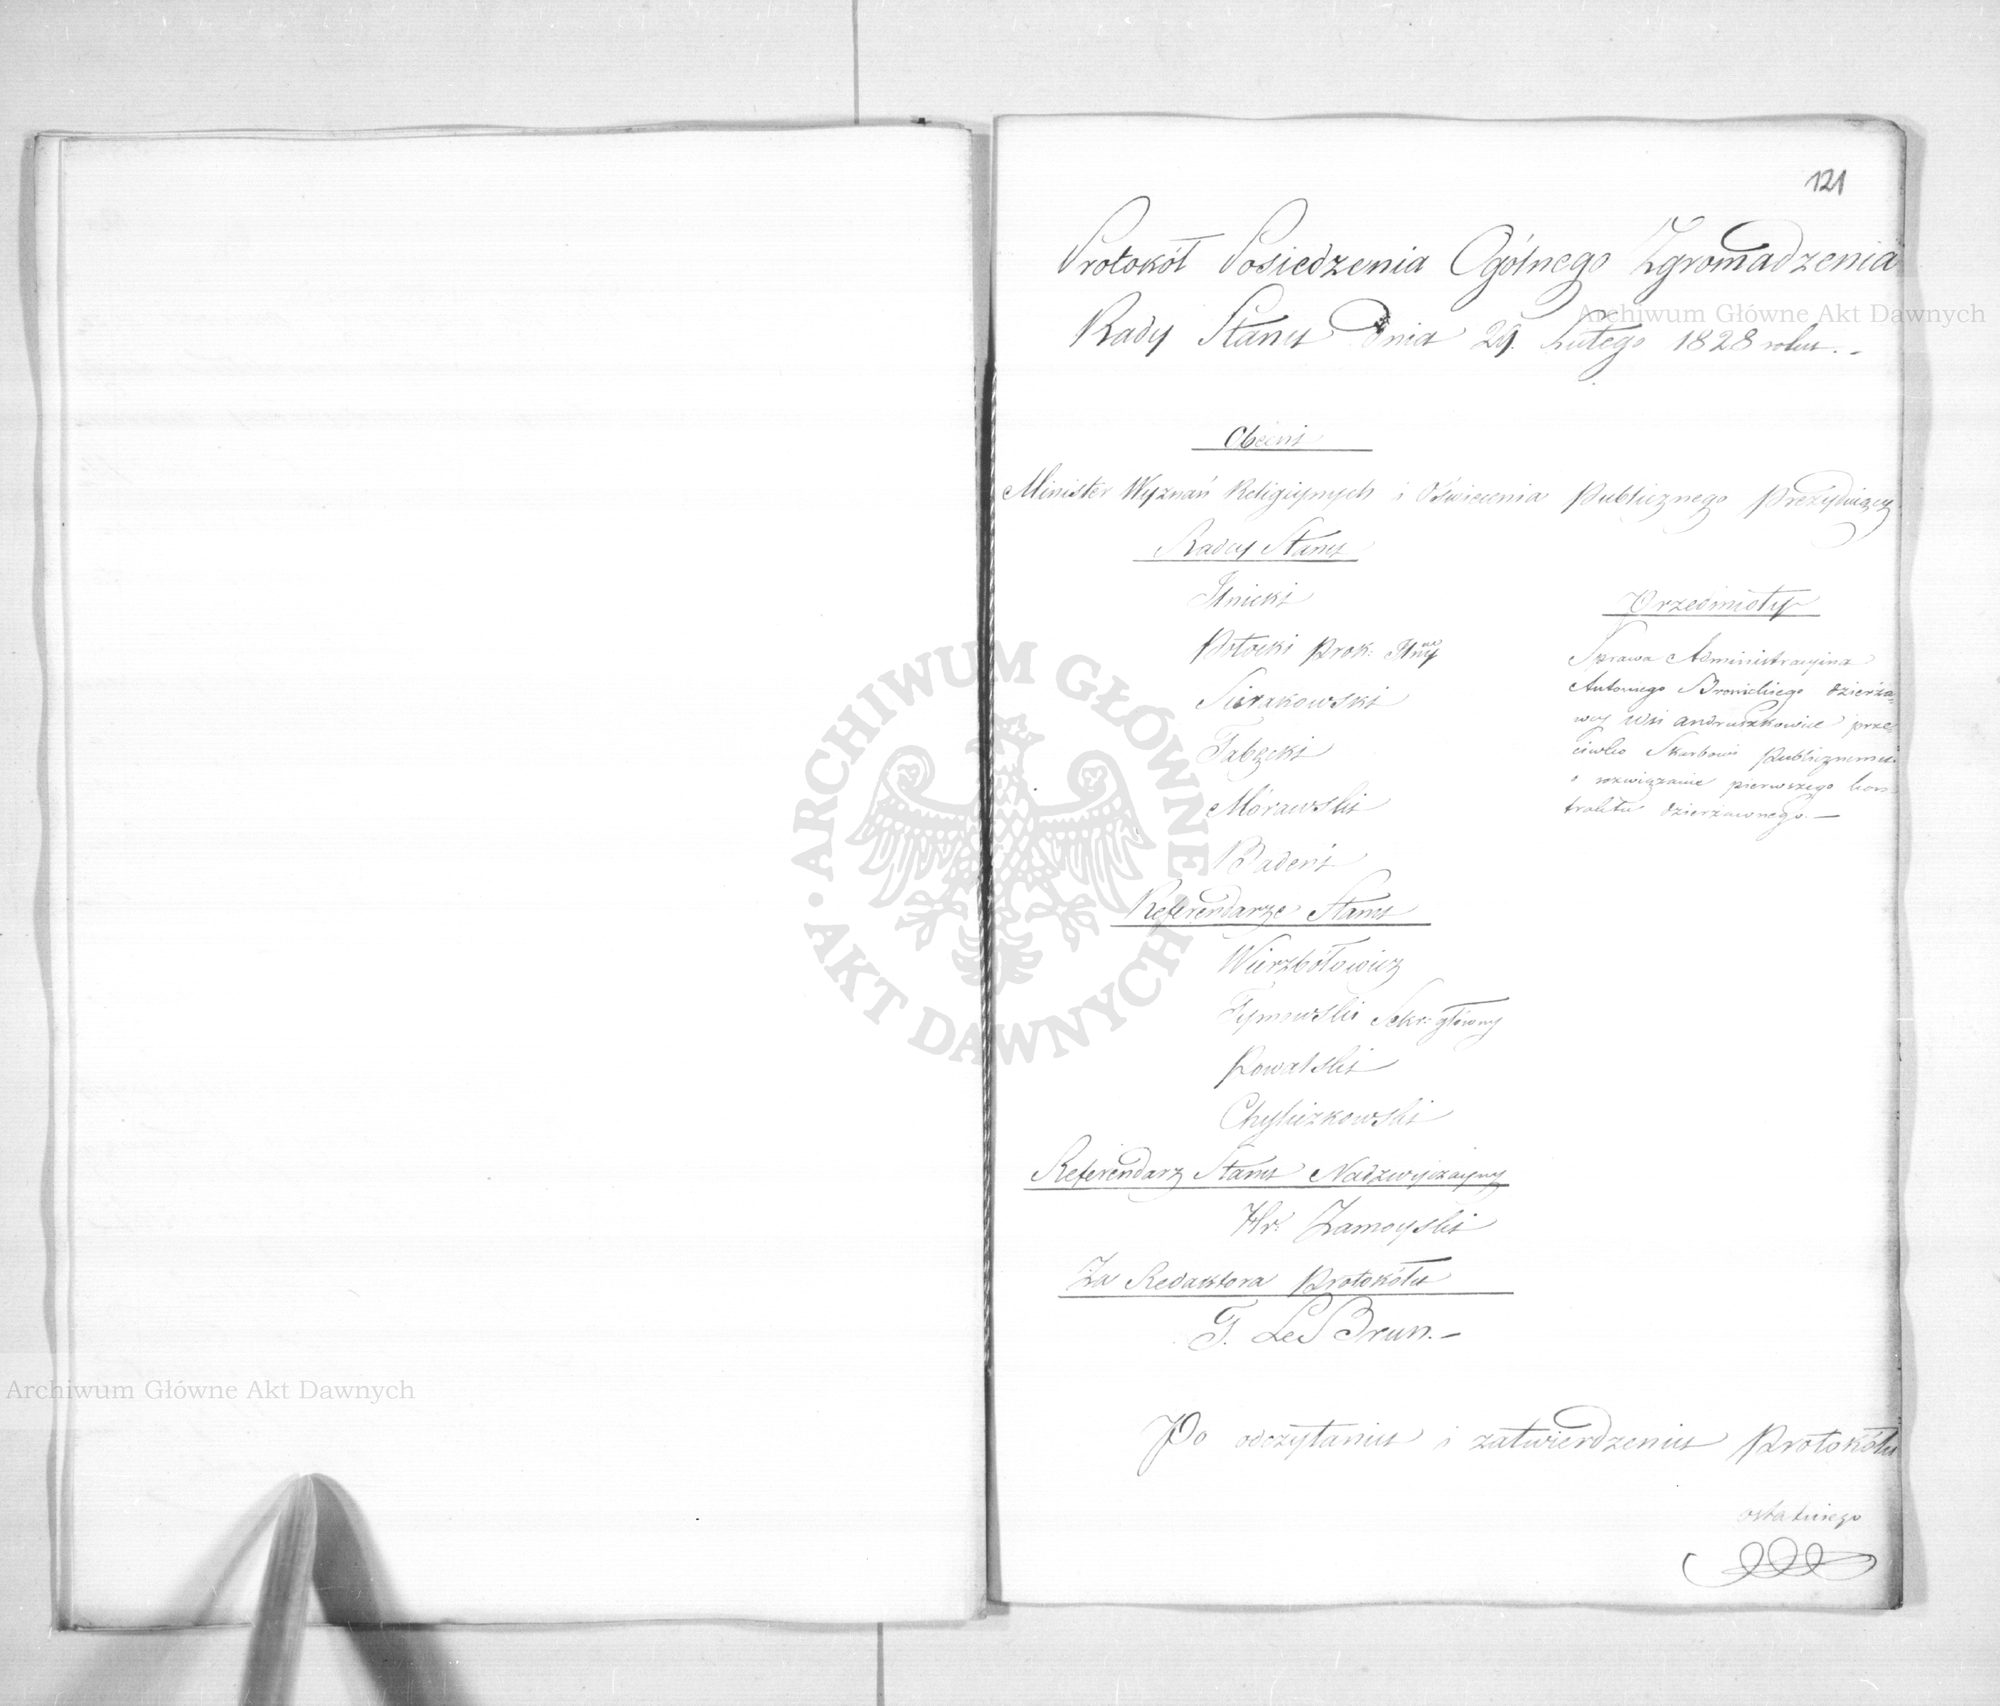 121
Protokół Posiedzenia Ogólnego Zgromadzenia
Rady Stanu dnia 29. Lutego 1828 roku. -
Obecni
Minister Wyznań Religijnych i Oświecenia Publicznego Prezydujący
Radcy Stanu
Potocki Prok:
Sierakowski
Morawski
Badeni
Referendarze Stanu
Wierzbołowicz
Tymowski Sekr: główny
Kowalski
Chyliczkowski
Referendarz Stanu Nadzwyczayny
Hr. Zamoyski
Za Redaktora Protokółu
F. Le Brun. -
Przedmioty
Sprawa Administracyina
Antoniego Bronickiego dzierża-
wcy wsi Andruszkowice prze-
ciwko Skarbowi Publicznemu
o rozwiązanie pierwszego kon-
traktu dzierżawnego. —
Po odczytaniu i zatwierdzeniu Protokółu
ostatniego
Archiwum Główne Akt Dawnych
Archiwum Główne Akt Dawnych
ARCHIWUM GŁÓWNE AKT DAWNYCH